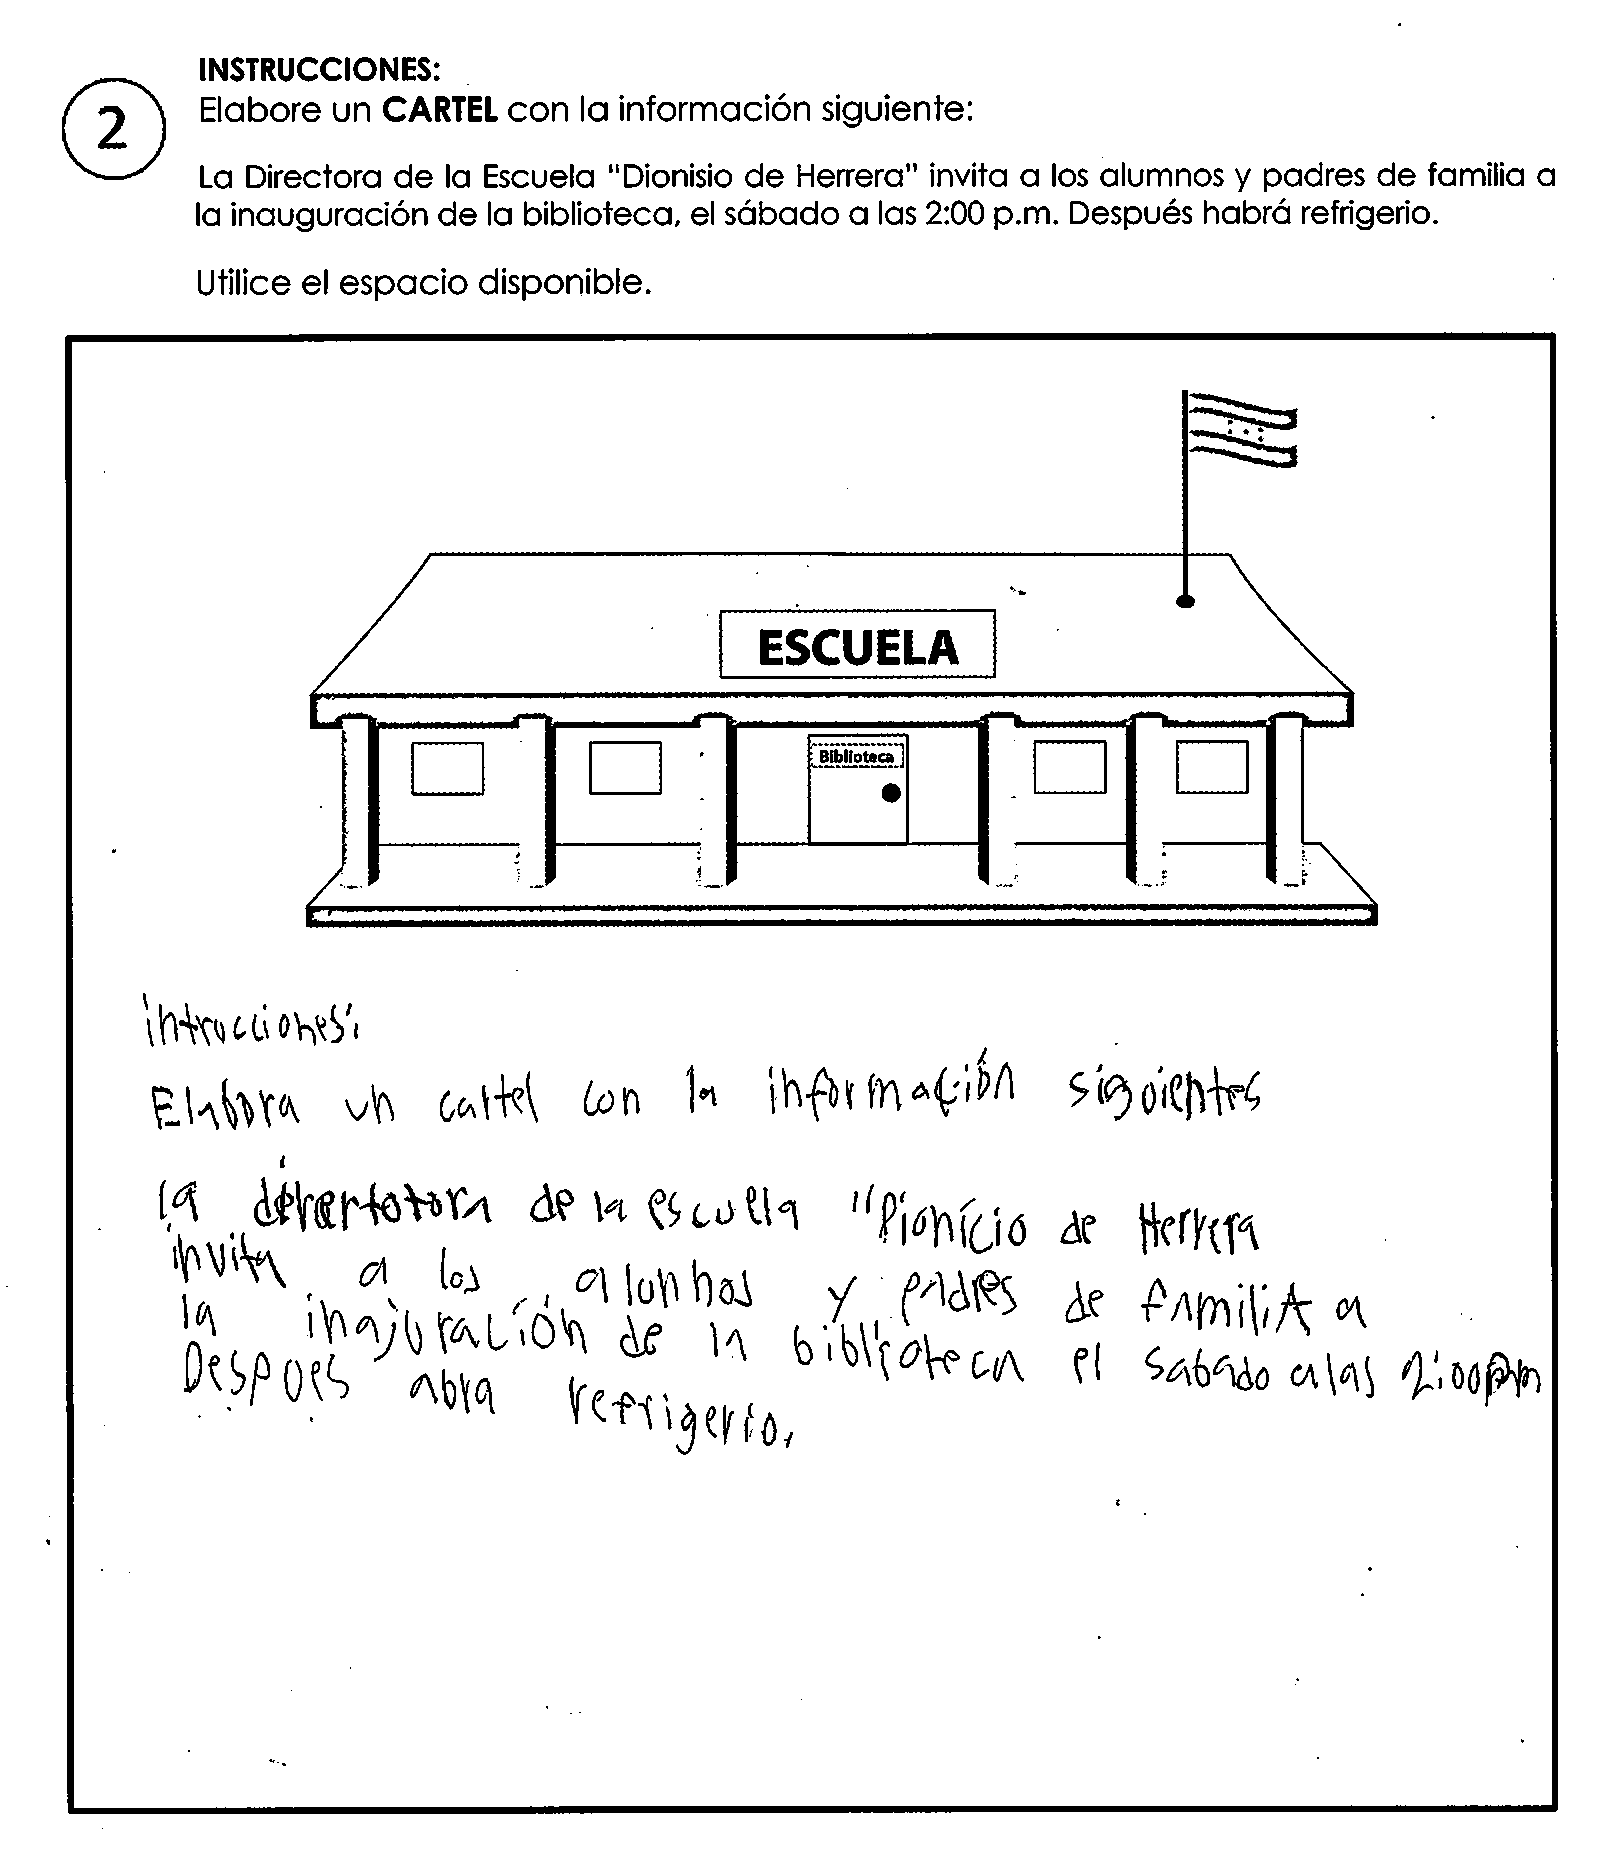 INSTRUCCIONES:
2
Elabore un CARTEL con la información siguiente:
La Directora de la Escuela "Dionisio de Herrera" invita a los alumnos y padres de familia a
la inauguración de la biblioteca, el sábado a las 2:00 p.m. Después habrá refrigerio.
Utilice el espacio disponible.
ESCUELA
Biblioteca
intrucciones:
Elabora un cartel con la información sigoientes
la de la escuella "Dionício de Herrera
invita a los alunnos y padres de familia a
la inajuración de la biblioteca el sabado a las 2:00pm
Despoes abra refrigerio.